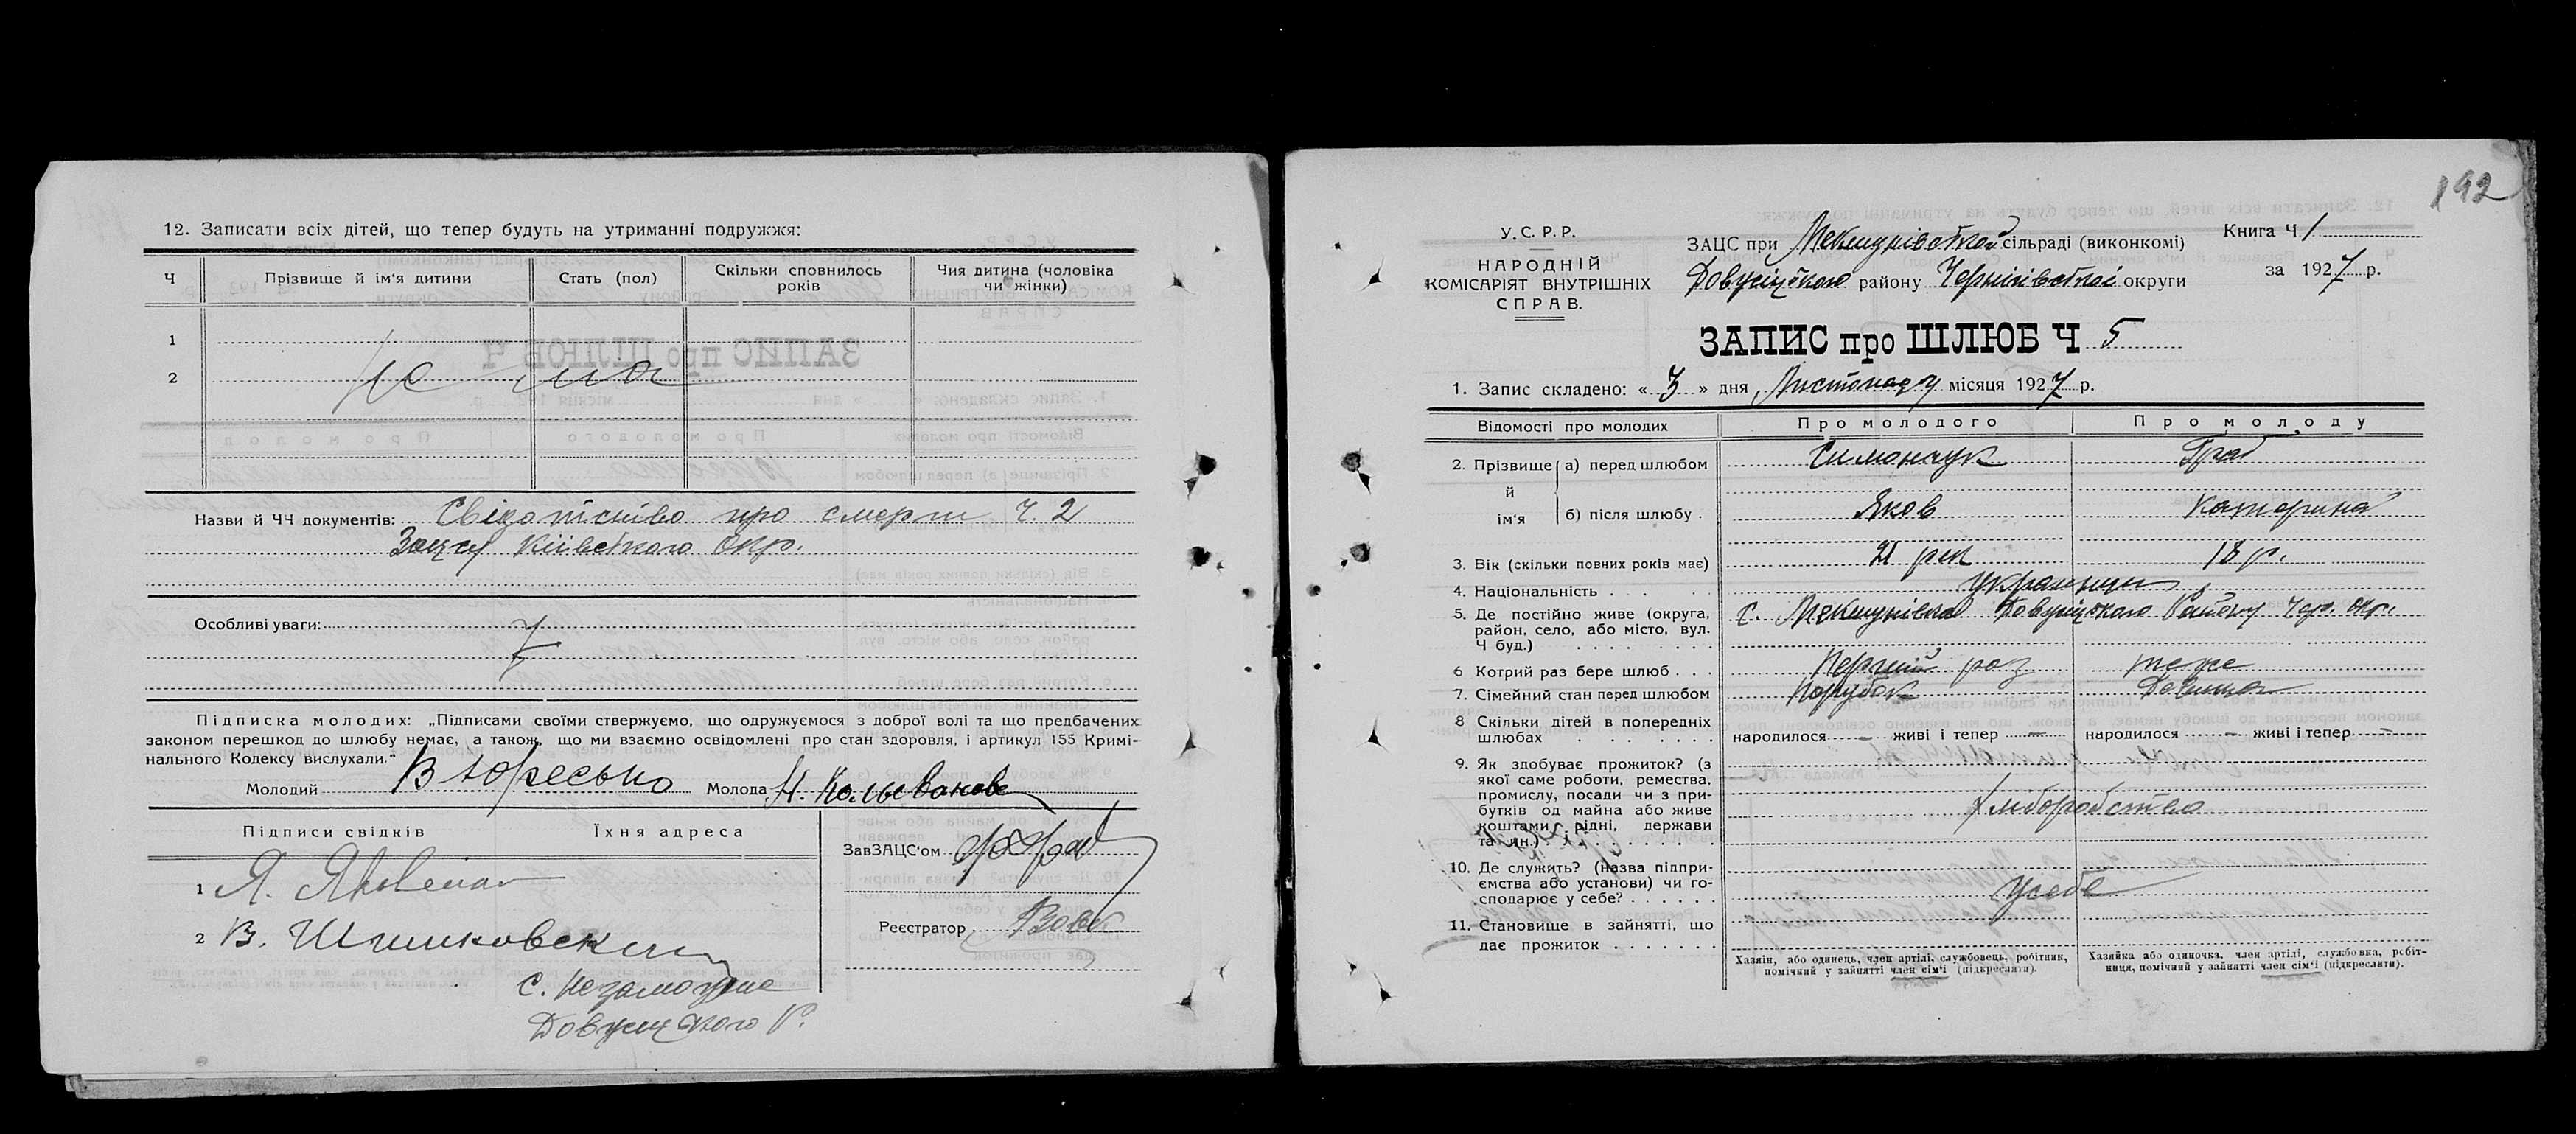 12. Записати всіх дітей, що тепер будуть на утриманні подружжя:
Ч Прізвище й ім'я дитини Стать (пол) Скільки сповнилось років Чия дитина (чоловіка чи жінки)
1
2 Не ма
Назви й ЧЧ документів: Свідотство про смерть Ч. 2
Загсу Київського Окр.
Особливі уваги:
Підписка молодих: „Підписами своїми стверджуємо, що одружуємося з доброї волі та що предбачених
законом перешкод до шлюбу немає, а також, що ми взаємно освідомлені про стан здоровля, і артикул 155 Кримі-
нального Кодексу вислухали."
Молодий В Юресько Молода Н.
Підписи свідків Їхня адреса
ЗавЗАЦС'ом
1 Я.
2 В. Шишковский
Реєстратор
с. Незаможне
Р.
192
У.С.Р.Р.
НАРОДНІЙ
КОМІСАРІЯТ ВНУТРІШНІХ
СПРАВ.
ЗАЦС при сільраді (виконкомі)
району Чернігівської округи
Книга Ч 1
за 1927 р.
ЗАПИС про ШЛЮБ Ч 5
1. Запис складено: « 3 » дня Листопаду місяця 1927 р.
Відомості про молодих Про молодого Про молоду
2. Прізвище й ім'я
а) перед шлюбом Симончук Граб
б) після шлюбу . Яков Катерина
3. Вік (скільки повних років має) 21 рік 18 р.
4. Національність . . . Українці
5. Де постійно живе (округа,
район, село, або місто, вул.
Ч буд.) . . . . . . .
с. Району Чер. окр.
6 Котрий раз бере шлюб . . . Перший раз теже
7. Сімейний стан перед шлюбом Порубок Дівиця
8 Скільки дітей в попередніх
шлюбах . . . . . .
народилося – живі і тепер – народилося – живі і тепер –
9. Як здобуває прожиток? (з
якої саме роботи, ремества,
промислу, посади чи з при-
бутків од майна або живе
коштами рідні, держави
та ин.) . . . . . . . .
Хліборобство
10. Де служить? (назва підпри-
ємства або установи) чи го-
сподарює у себе? . . . . . .
Усебе
11. Становище в зайнятті, що
дає прожиток . . . . . . .
Хазяїн, або одинець, член артілі, службовець, робітник,
помічний у зайнятті член сім'ї (підкреслити).
Хазяйка або одиночка, член артілі, службовка, робіт-
ниця, помічний у зайнятті член сім'ї (підкреслити).